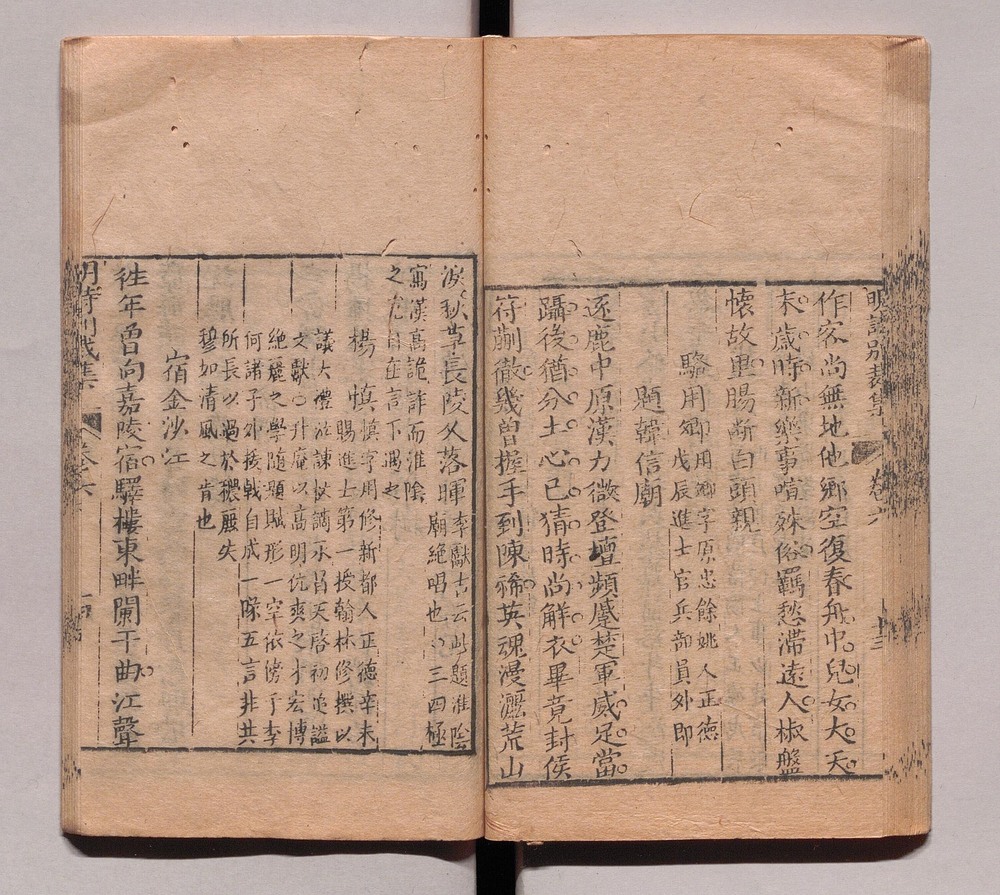 明詩別裁集 卷六 十三
作客尚無地他鄉空復春舟中兒女大天
末歲時新樂事嗜殊俗羈愁滯遠人椒盤
懷故里腸斷白頭親
駱用卿 用卿字原忠餘姚人正德
戊辰進士官兵部員外郎
題韓信廟
逐鹿中原漢力微登壇頻蹙楚軍威足當
躡後猶分土心已猜時尚解衣畢竟封侯
符蒯徹幾曾握手到陳豨英魂漫灑荒山
淚秋草長陵又落暉 李獻吉云此題淮陰
廟絕唱也○三四極
寫漢高詭詐而淮陰
之冤自在言下遇之
楊慎 慎字用修新都人正德辛未
賜進士第一授翰林修撰以
議大禮泣諫杖謫永昌天啓初追謚
文獻○升庵以高明伉爽之才宏博
絕麗之學隨題賦形一空依傍于李
何諸子外拔戟自成一隊五言非其
所長以過於穠麗失
穆如清風之旨也
宿金沙江
往年曾向嘉陵宿驛樓東畔闌干曲江聲
明詩別裁集 卷六 十四